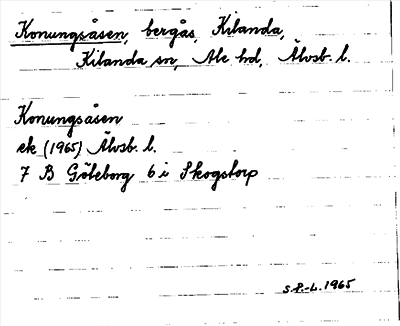 Konungsåsen, bergås, Kilanda,
Kilanda sn, Ale hd, Älvsb. l.
Konungsåsen
ek (1965) Älvsb. l.
7 B Göteborg 6 i Skogstorp
S.P.-L. 1965